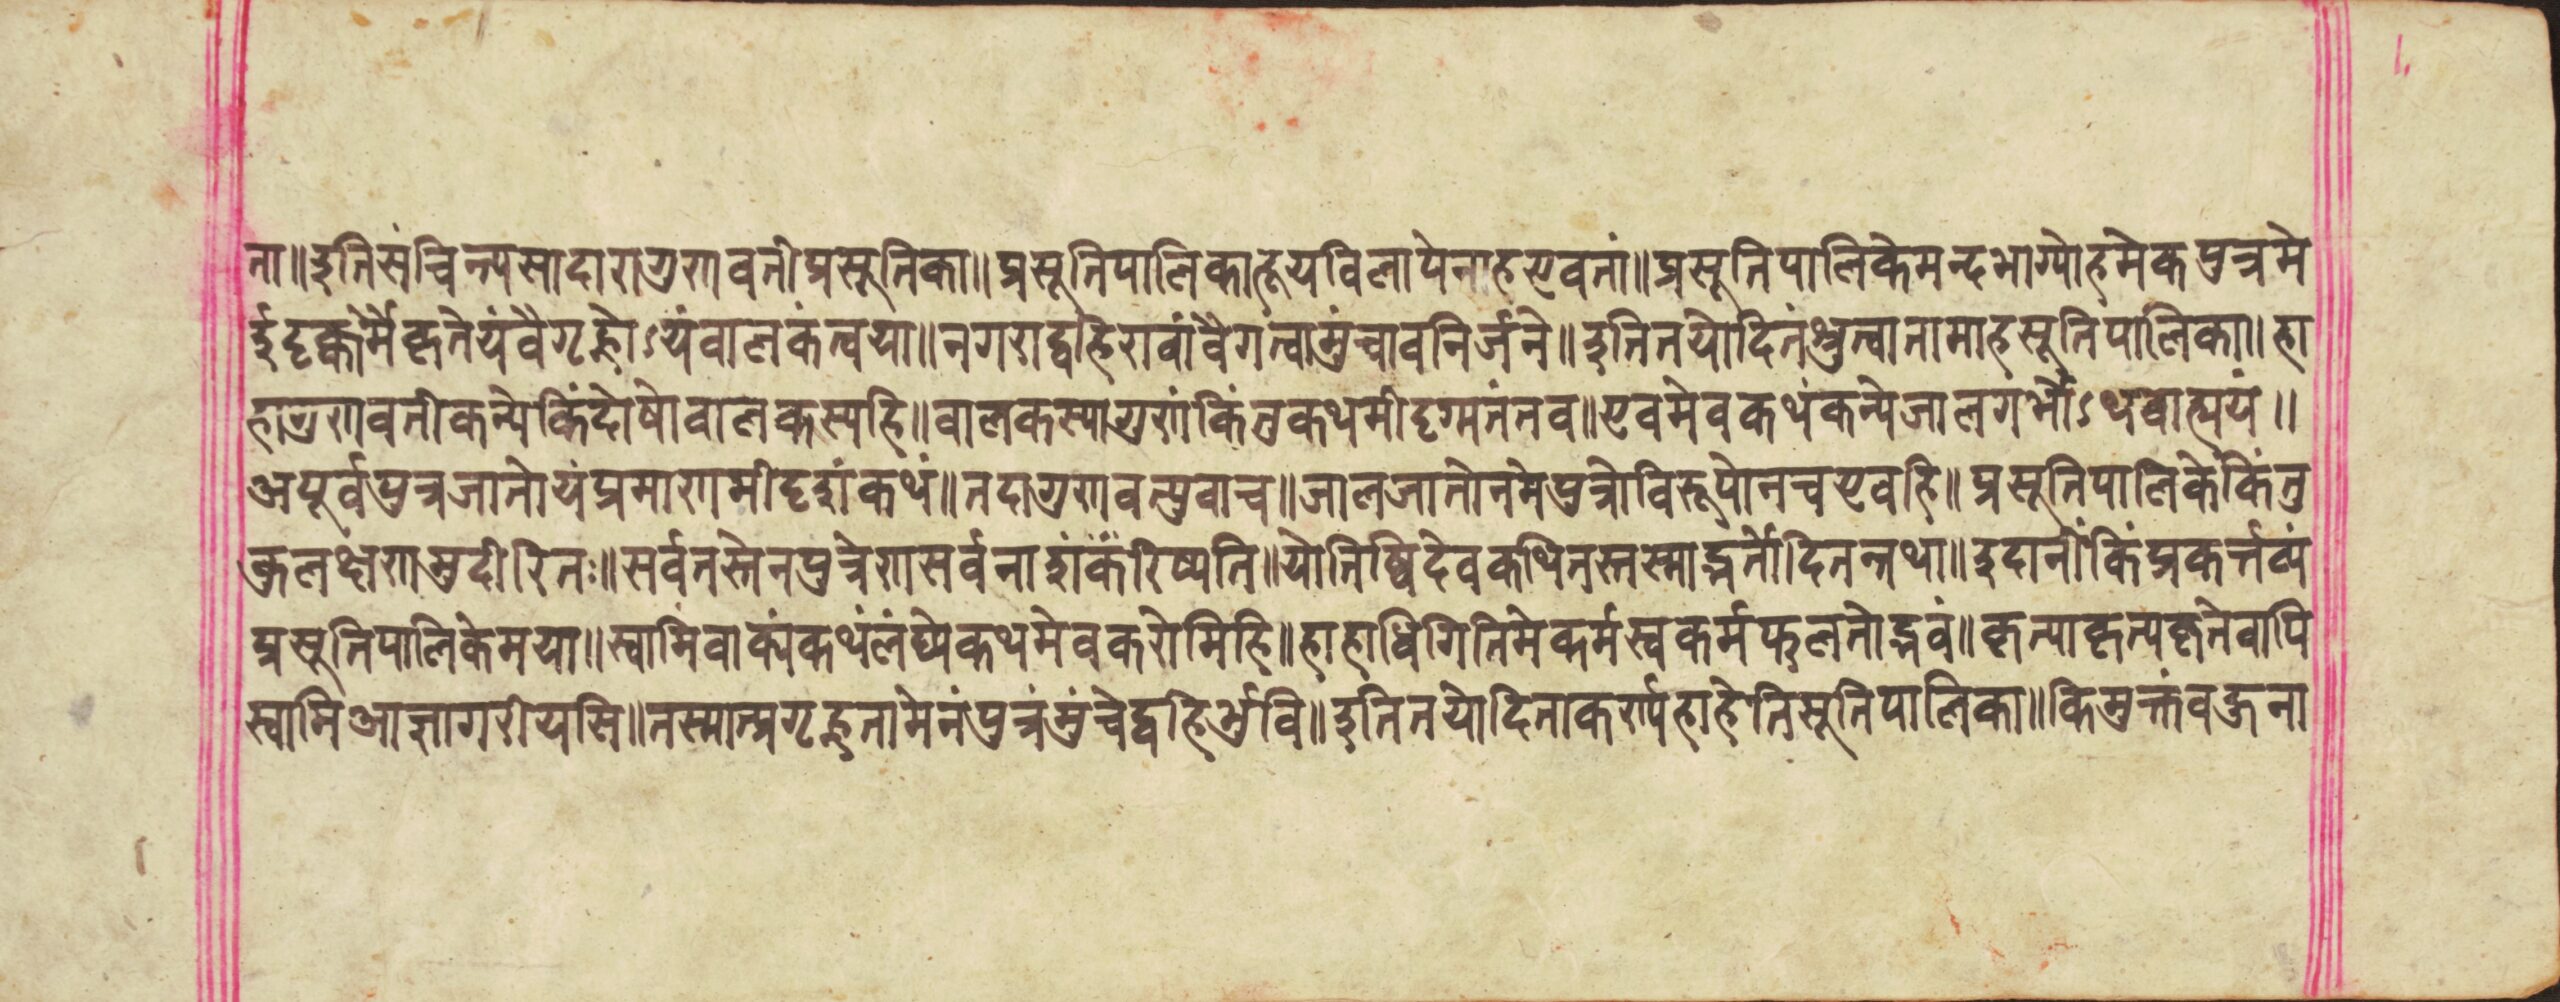 ता॥इतिसंचिन्त्यसादारागुणवतीप्रसूतिका॥प्रसूतिपालिकाहूयविलापेनाहएवतां॥प्रसूतिपालिकेमन्दभाग्योहमेकपुत्रमे
र्इदृक्कर्मैकृतेयंवैगृह्णोऽयंवालकंत्वया॥नगराद्वहिरावांवैगत्वामुंचावनिर्जने॥इतितयोदितंश्रुत्वातामाहसूतिपालिका॥हा
हागुणवतीकन्येकिंदोषोवालकस्यहि॥वालकस्यागुणंकिंतुकथमीदृग्मतंतव॥एवमेवकथंकन्येजालगर्भोऽथवाह्ययं॥
अपूर्वपुत्रजातोयंप्रमाणमीदृशंकथं॥तदागुणवत्युवाच॥जालजातोनमेपुत्रोविरूपोनचएवहि॥प्रसूतिपालिकेकिंतु
कुलक्षणमुदीरितः॥सर्वतस्तेनपुत्रेणसर्वनाशंकरिष्यति॥योतिष्विदेवकथितस्तस्माद्भर्तोदितन्तथा॥इदानींकिंप्रकर्त्तव्यं
प्रसूतिपालिकेमया॥स्वामिवाक्यंकथंलंघ्येकथमेवकरोमिहि॥हाहाधिगितिमेकर्मस्वकर्मफलतोद्भवं॥कृत्याकृत्यकृतेवापि
स्वामिआज्ञागरीयसि॥तस्मात्प्रगृह्णतामेनंपुत्रंमुंचेद्वहिर्भुवि॥इतितयोदिताकर्ण्यहाहेतिसूतिपालिका॥किमुक्तंवकुना